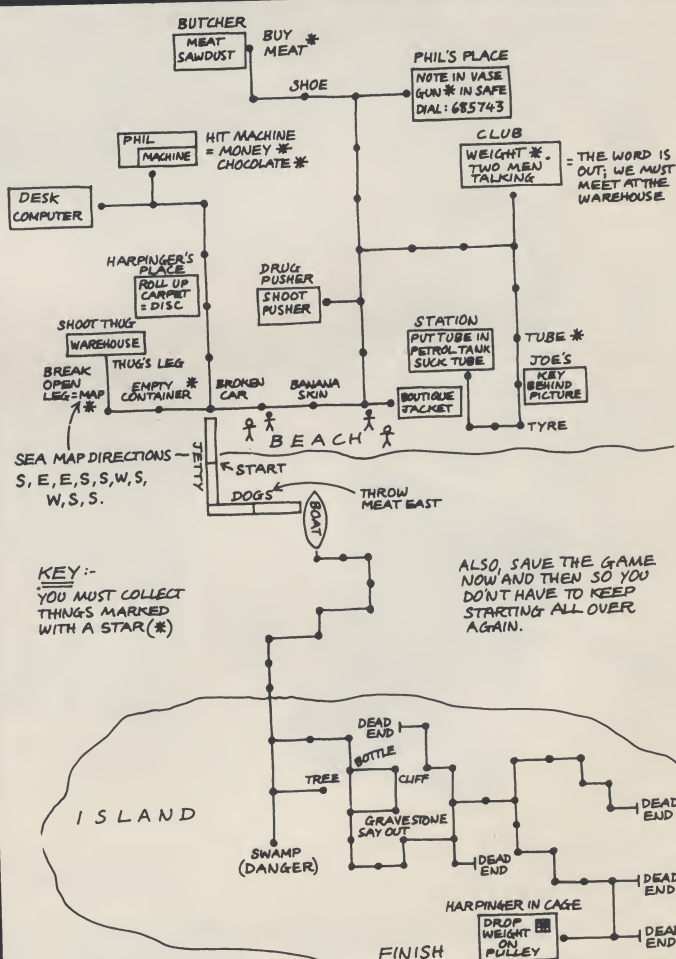 BUTCHER
MEAT
SAWDUST
BUY
MEAT *
SHOE
PHIL'S PLACE
NOTE IN VASE
GUN * IN SAFE
DIAL: 685743
PHIL
MACHINE
HIT MACHINE
= MONEY *
CHOCOLATE *
CLUB
WEIGHT *.
TWO MEN
TALKING
= THE WORD IS
OUT; WE MUST
MEET AT THE
WAREHOUSE
DESK
COMPUTER
HARPINGER'S
PLACE
ROLL UP
CARPET
= DISC
DRUG
PUSHER
SHOOT
PUSHER
SHOOT THUG
WAREHOUSE
THUG'S LEG
BREAK
OPEN
LEG = MAP
*
EMPTY *
CONTAINER
BROKEN
CAR
BANANA
SKIN
STATION
PUT TUBE IN
PETROL TANK
SUCK TUBE
BOUTIQUE
JACKET
TUBE *
JOE'S
KEY
BEHIND
PICTURE
TYRE
BEACH
SEA MAP DIRECTIONS
S, E, E, S, S, W, S,
W, S, S.
JETTY
START
DOGS
BOAT
THROW
MEAT EAST
KEY:-
YOU MUST COLLECT
THINGS MARKED
WITH A STAR (*)
ALSO, SAVE THE GAME
NOW AND THEN SO YOU
DO'NT HAVE TO KEEP
STARTING ALL OVER
AGAIN.
ISLAND
DEAD
END
BOTTLE
TREE
CLIFF
GRAVESTONE
SAY OUT
SWAMP
(DANGER)
DEAD
END
DEAD
END
DEAD
END
DEAD
END
HARPINGER IN CAGE
DROP
WEIGHT
ON
PULLEY
FINISH